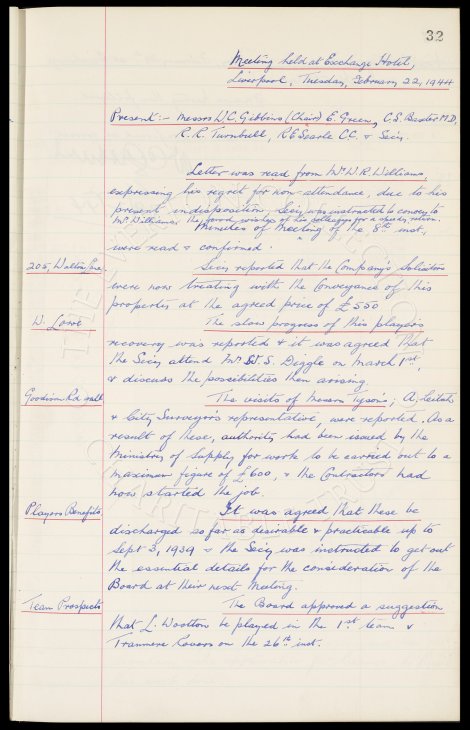 32
Meeting held at Exchange Hotel,
Liverpool, Tuesday, February 22, 1944
Present:- Messrs W.C. Gibbins (Chair) E. Green, C.S. Baxter M.D.
R.R. Turnbull, R E Searle C.C. & Secy.
Letter was read from Mr W.R. Williams,
expressing his regret for non-attendance, due to his
present indisposition, Secy was instructed to convey to
Mr Williams the good wishes of his colleagues for a speedy return.
Minutes of Meeting of the 8th inst,
were read & confirmed.
205, Walton Lane. Secy reported that the Company's Solicitors
were now treating with the Conveyance of this
property at the agreed price of £550
W. Lowe The slow progress of this players
recovery was reported & it was agreed that
the Secy attend Mr W.S. Diggle on March 1st,
& discuss the possibilities then arising.
Goodison Rd wall The visits of Messrs Tyson's, A. Leitch
& City Surveyor's representative, were reported. As a
result of these, authority had been issued by the
Ministry of Supply for work to be carried out to a
maximum figure of £600, & the Contractors had
now started the job.
Players Benefits It was agreed that these be
discharged so far as desirable & practicable up to
Sept 3, 1939 & the Secy was instructed to get out
the essential details for the consideration of the
Board at their next Meeting.
Team Prospects The Board approved a suggestion
that L. Wootton be played in the 1st team v
Tranmere Rovers on the 26th inst.